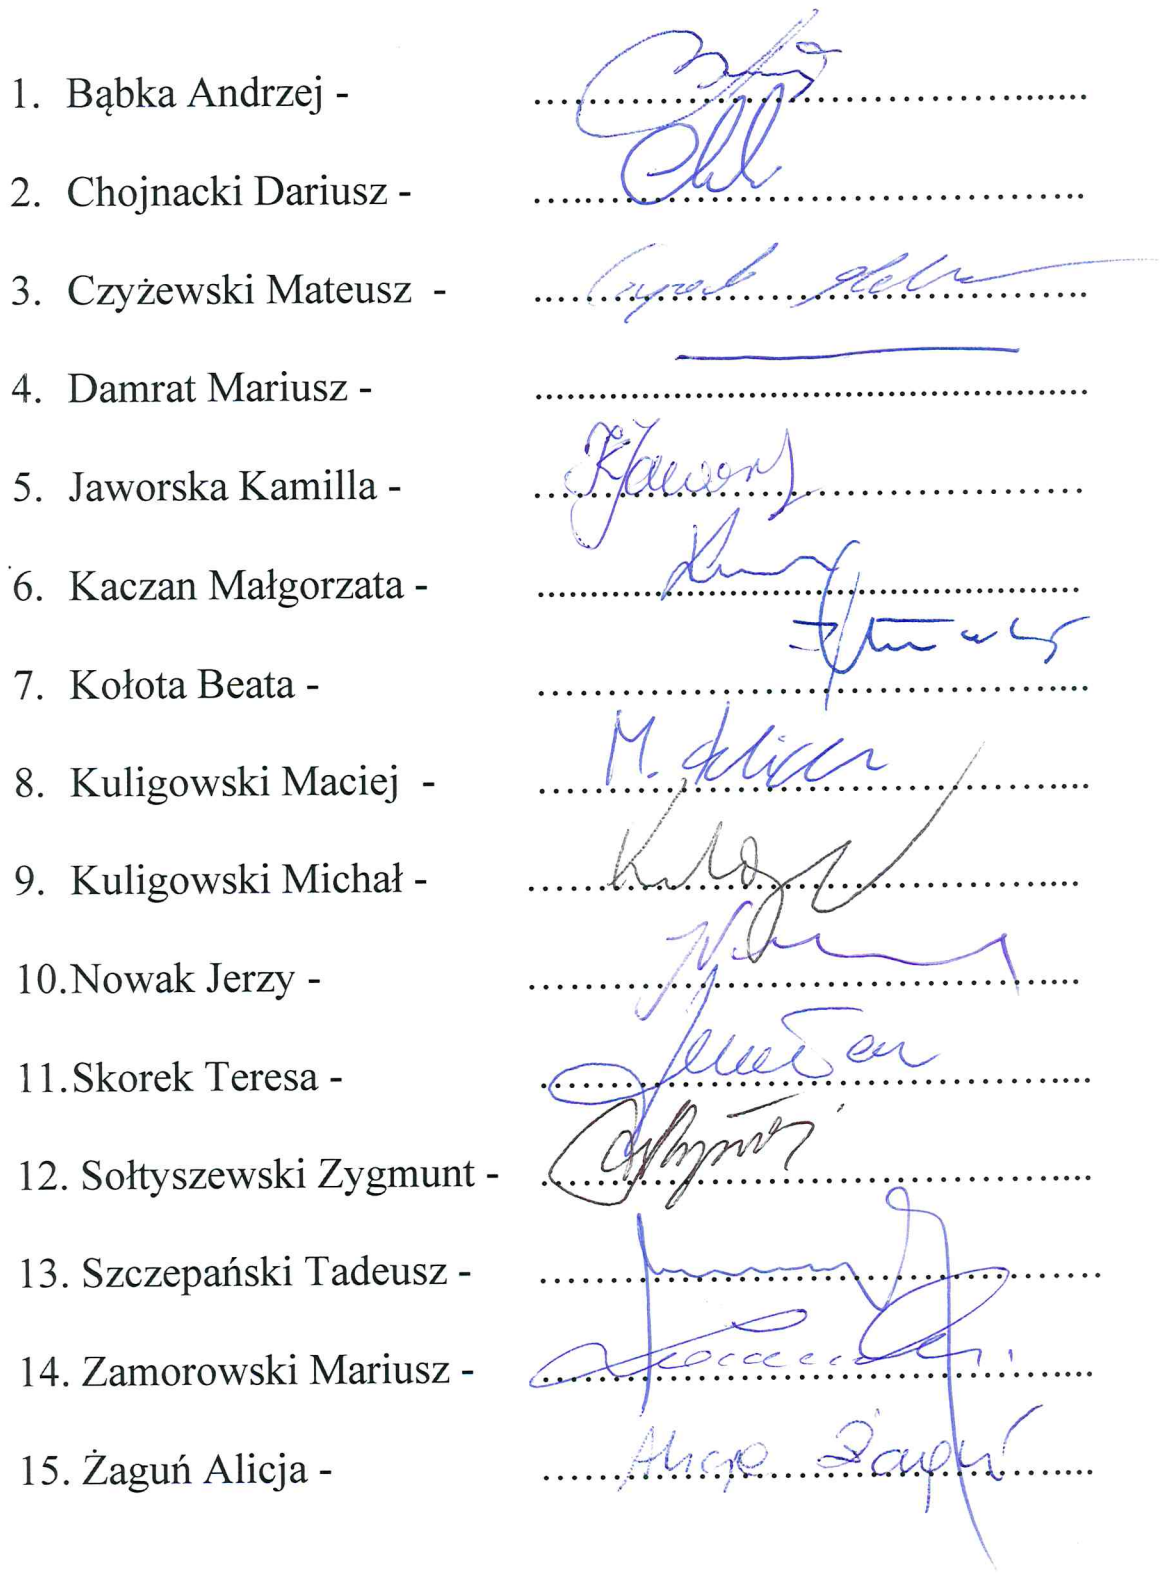 1. Bąbka Andrzej - ..........
2. Chojnacki Dariusz - ..........
3. Czyżewski Mateusz - ..........
4. Damrat Mariusz - ..........
5. Jaworska Kamilla - ..........
6. Kaczan Małgorzata - ..........
7. Kołota Beata - ..........
8. Kuligowski Maciej - .......... M.
9. Kuligowski Michał - ..........
10. Nowak Jerzy - ..........
11. Skorek Teresa - ..........
12. Sołtyszewski Zygmunt - ..........
13. Szczepański Tadeusz - ..........
14. Zamorowski Mariusz - ..........
15. Żaguń Alicja - .......... Alicja Żaguń